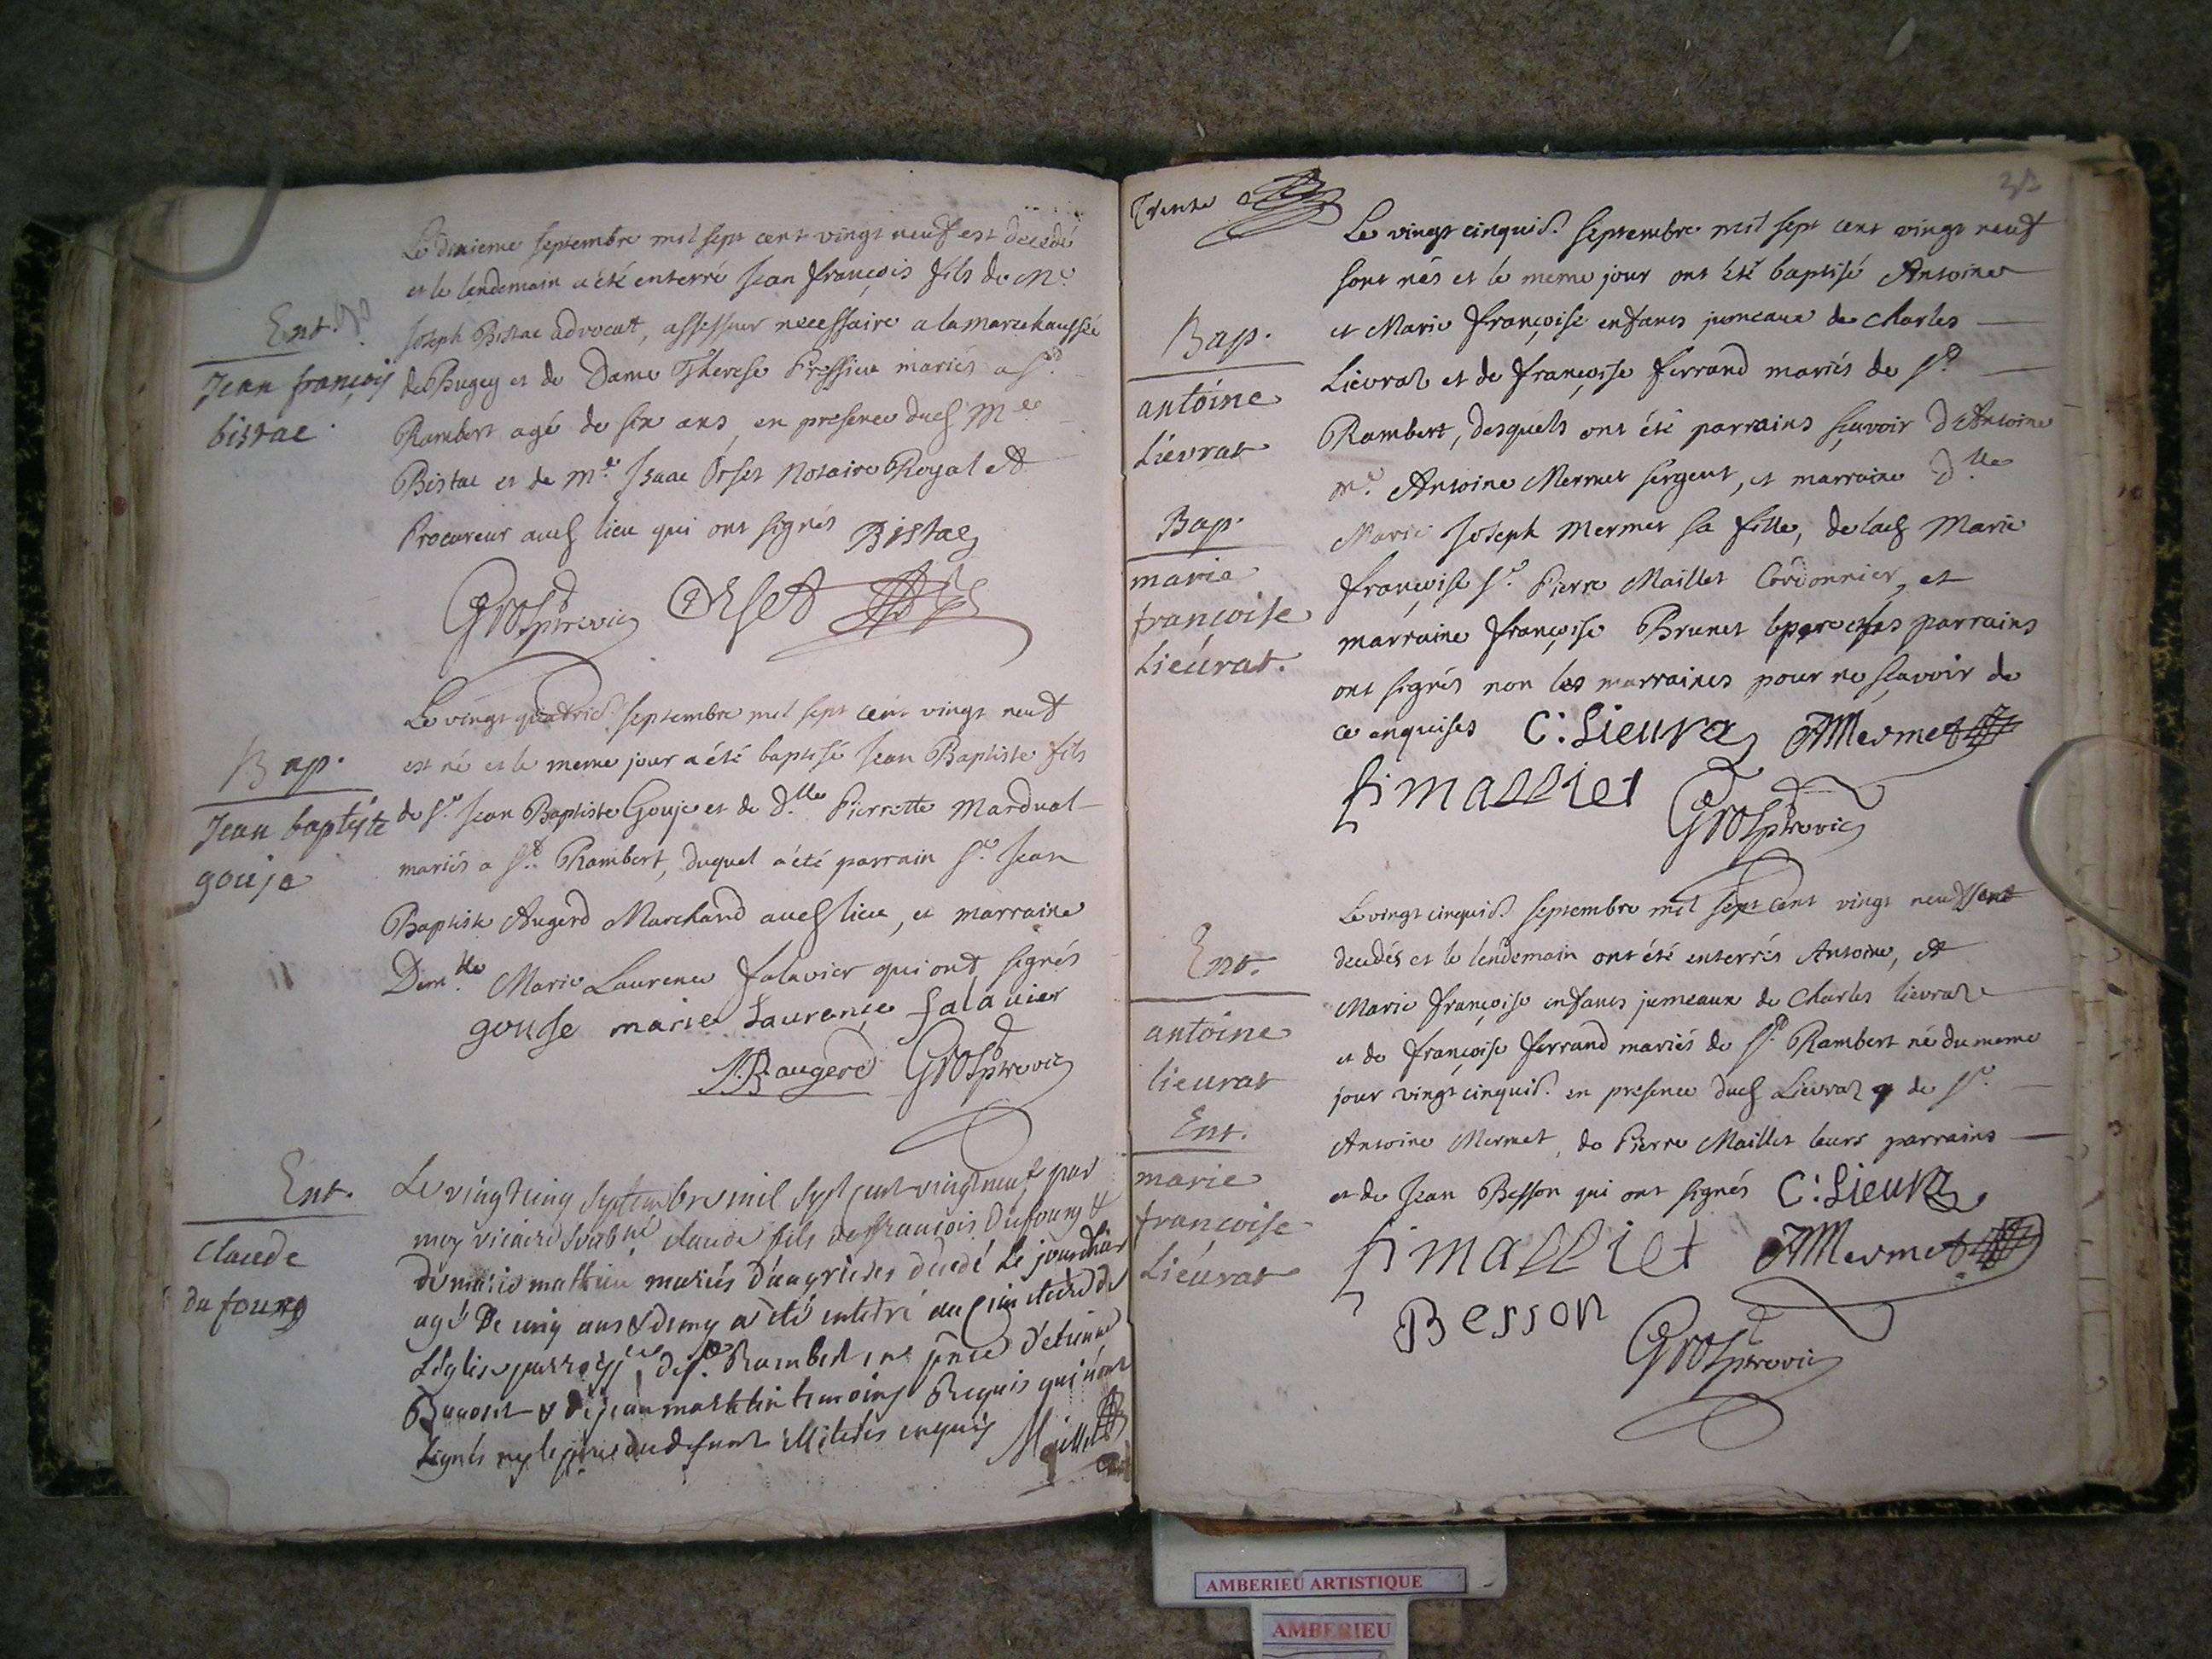 Ent.
Jean françois
bistac
Le dixieme septembre mil sept cent vingt neuf est decedé
et le lendemain a été enterré Jean françois fils de Me.
Joseph Bistac advocat, assesseur necessaire a la marechaussée
de Bugey et de Dame Therese Pressieu mariés a St.
Rambert agé de six ans, en presence dud Me
Bistac et de Me. Isaac Orset Notaire Royal et
Procureur aud lieu qui ont signés Bistac
Grosptrevic Orset
Bap.
Jean baptiste
gouje
Le vingt quatrie. septembre mil sept cent vingt neuf
est né et le meme jour a été baptisé Jean Baptiste fils
de Sr. Jean Baptiste Gouje et de Dlle Pierrette Mardual
mariés a St. Rambert, duquel a été parrain Sr. Jean
Baptiste Augerd Marchand aud lieu, et marraine
Demlle Marie Laurence falavier qui ont signés
gouse marie Laurence falavier
J.B. augerd Grosptrevic
Ent.
Claude
du fourg
Le vingt cinq septembre mil sept cent vingt neuf par
moy vicaire claude fils de françois Dufourg &
de marie mathieu mariés decedé le jourdhier
agé De cinq ans & demy a été enterré au Cimetiere de
L'église parroissle de St. Rambert en pñce d'étienne
& de jean martin temoins Requis qui n'ont
signés ny le pere du defunt illiterés enquis Maillet
Trente
Bap.
antoine
Lievrat
Bap.
marie
françoise
Lieurat.
Le vingt cinquie. septembre mil sept cent vingt neuf
sont nés et le meme jour ont été baptisé Antoine
et Marie françoise enfants jumeaux de Charles
Lievraz et de françoise ferrand mariés de St.
Rambert, desquels ont été parrains sçavoir d'Antoine
Me. Antoine Mermet sergent, et marraine Dlle
Marie Joseph Mermet sa fille, de lad Marie
françoise Sr. Pierre Maillet Cordonnier, et
marraine françoise Brunet le pere et les parrains
ont signés non les marraines pour ne sçavoir de
ce enquises C: Lieura AMermet
fimalliet Grosptrevic
Ent.
antoine
lieurat
Ent.
marie
françoise
Lieurat
Le vingt cinquie. septembre mil sept cent vingt neuf sont
decedés et le lendemain ont été enterrés Antoine, et
Marie françoise enfants jumeaux de Charles lievraz
et de françoise ferrand mariés de St. Rambert né du meme
jour vingt cinquie. en presence dud Lievraz de Sr.
Antoine Mermet, de Pierre Maillet leurs parrains
et de Jean Besson qui ont signés C: Lieura
fimalliet AMermet
Besson Grosptrevic
AMBERIEU ARTISTIQUE
AMBERIEU